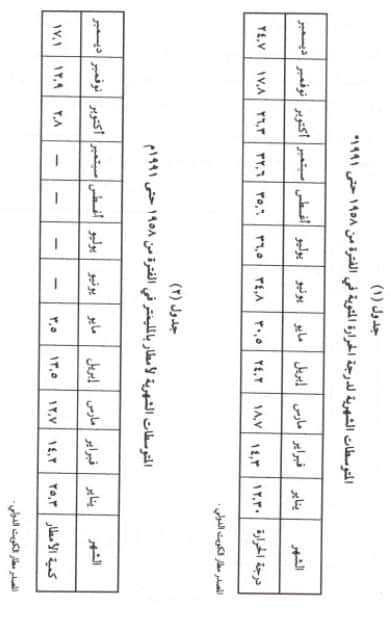 جدول (١)
المتوسطات الشهرية لدرجة الحرارة المئوية في الفترة من ١٩٥٨ حتى ١٩٩١°
الشهر يناير فبراير مارس إبريل مايو يونيو يوليو أغسطس سبتمبر أكتوبر نوفمبر ديسمبر
درجة الحرارة ١٢,٣٠ ١٤,٣ ١٨,٧ ٢٤,٢ ٣٠,٥ ٣٤,٨ ٣٦,٥ ٣٥,٦ ٣٢,٦ ٢٦,٣ ١٧,٨ ٢٤,٧
المصدر مطار الكويت الدولي .
جدول (٢)
المتوسطات الشهرية لأمطار بالمليمتر في الفترة من ١٩٥٨ حتى ١٩٩١م
الشهر يناير فبراير مارس إبريل مايو يونيو يوليو أغسطس سبتمبر أكتوبر نوفمبر ديسمبر
كمية الأمطار ٢٥,٣ ١٤,٣ ١٢,٧ ١٣,٥ ٣,٥ — — — — ٢,٨ ١٢,٩ ١٧,١
المصدر مطار الكويت الدولي .